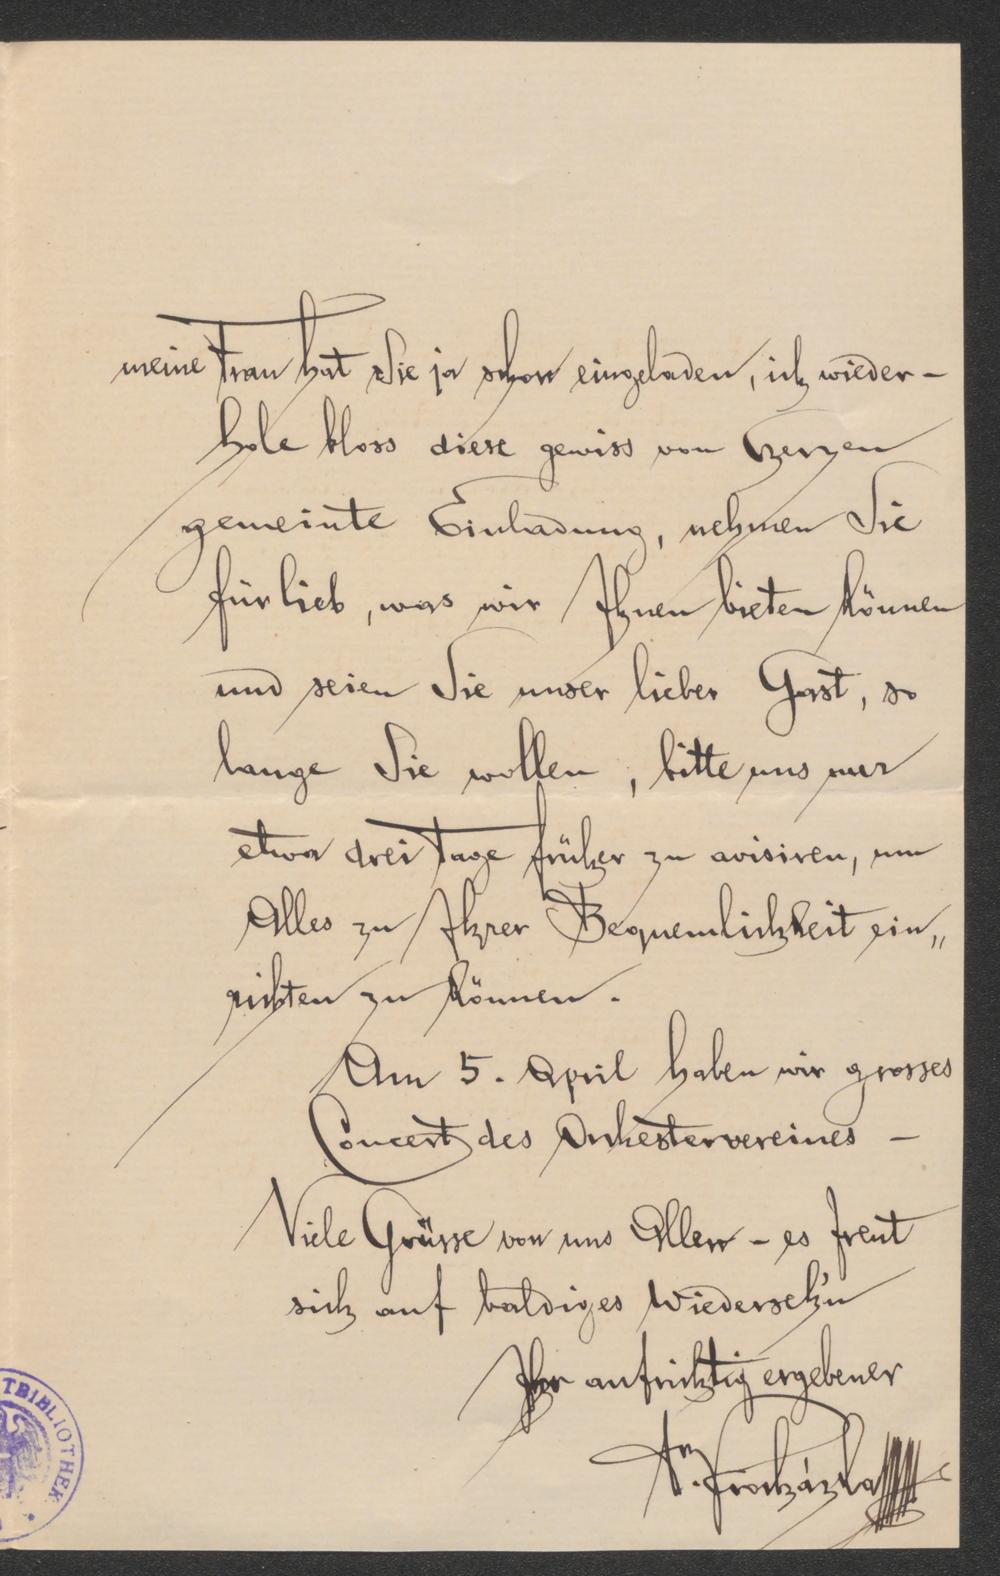 meine Frau hat Sie ja schon eingeladen, ich wieder-
hole bloss diese gewiss von Herzen
gemeinte Einladung, nehmen Sie
fürlieb, was wir Ihnen bieten können
und seien Sie unser lieber Gast, so
lange Sie wollen, bitte uns nur
etwa drei Tage früher zu avisiren, um
Alles zu Ihrer Bequemlichkeit ein„
richten zu können.
Am 5. April haben wir grosses
Concert des Orchestervereines –
Viele Grüsse von uns Allen – es freut
sich auf baldiges Wiederseh'n
Ihr aufrichtig ergebener
Procházka
TBIBLIOTHEK